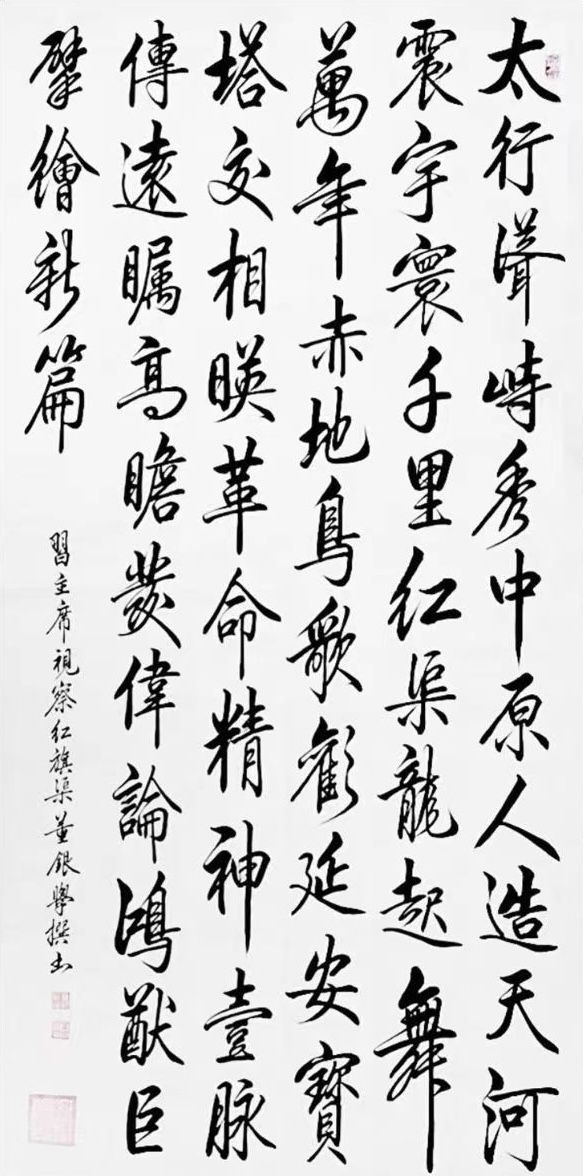 太行聳峙秀中原人造天河
震宇寰千里红渠龍起舞
萬年赤地鳥歌歡延安寶
塔交相暎革命精神壹脉
傳遠瞩高瞻發偉論鴻猷巨
擘繪新篇
習主席視察红旗渠董銀學撰书